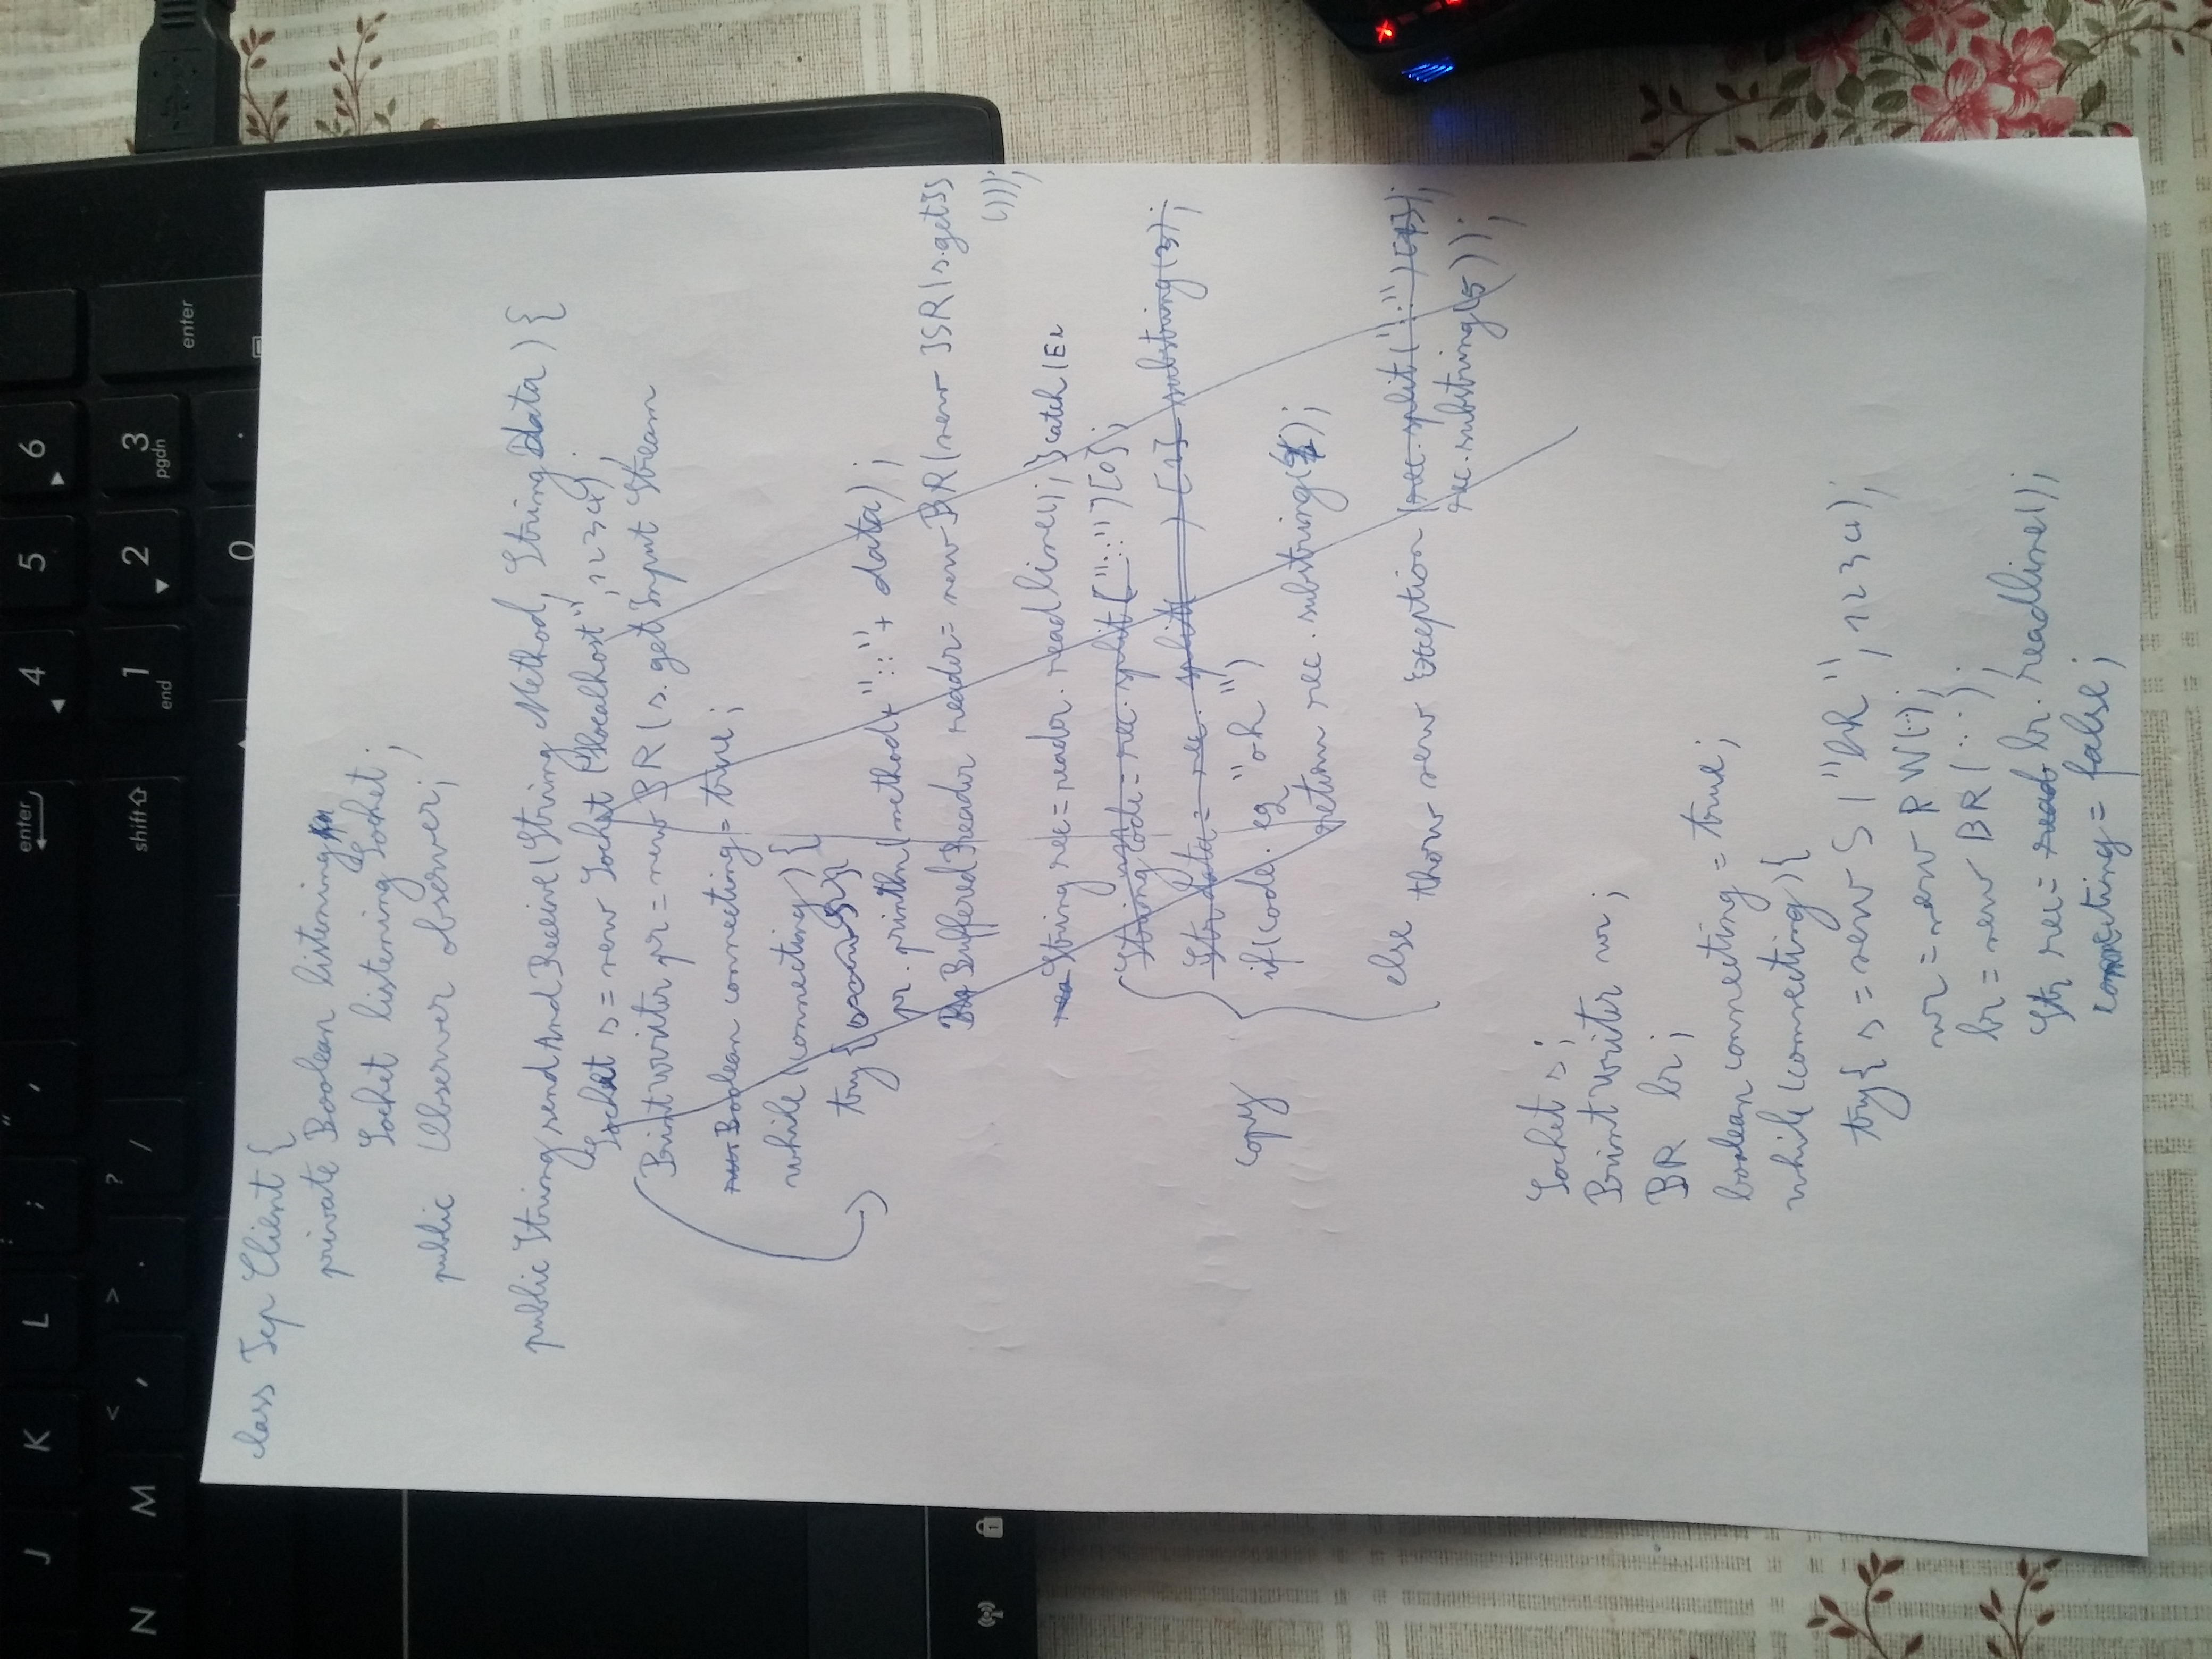 J K L : ; " ' enter 4 5 6
N M < , > . ? / shift 1 end 2 3 pgdn enter
0 .
class Tcp Client {
private Boolean listening
Socket listening Socket ;
public Observer observer;
public String send And Receive (String Method, String Data ) {
Socket s = new Socket ("localhost", 1234);
Print Writer pr = new BR (s. get Input Stream
Boolean connecting = true ;
while (connecting) {
try {
pr. println (method + "::" + data) ;
Buffered Reader reader = new BR (new ISR (s.getIS
()));
String rec = reader. read line(); } catch (Ex
String code = rec. split ("::") [0];
Str data = rec. split( ) [1] substring (3);
copy
if (code. eq "ok ")
return rec. substring( );
else
thow new Exception (rec. split ("::") [1]);
rec. substring (5));
Socket s ;
Print Writer wr ;
BR br ;
boolean connecting = true;
while (connecting) {
try{ s = new S ( "lh", 1234);
wr = new PW(..);
br = new BR (...);
Str rec = read br. readline();
connecting = false;